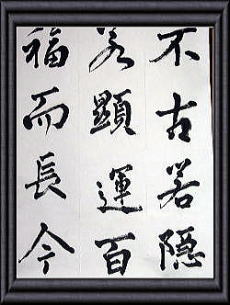 不古若隱
若顯運百
福而長今